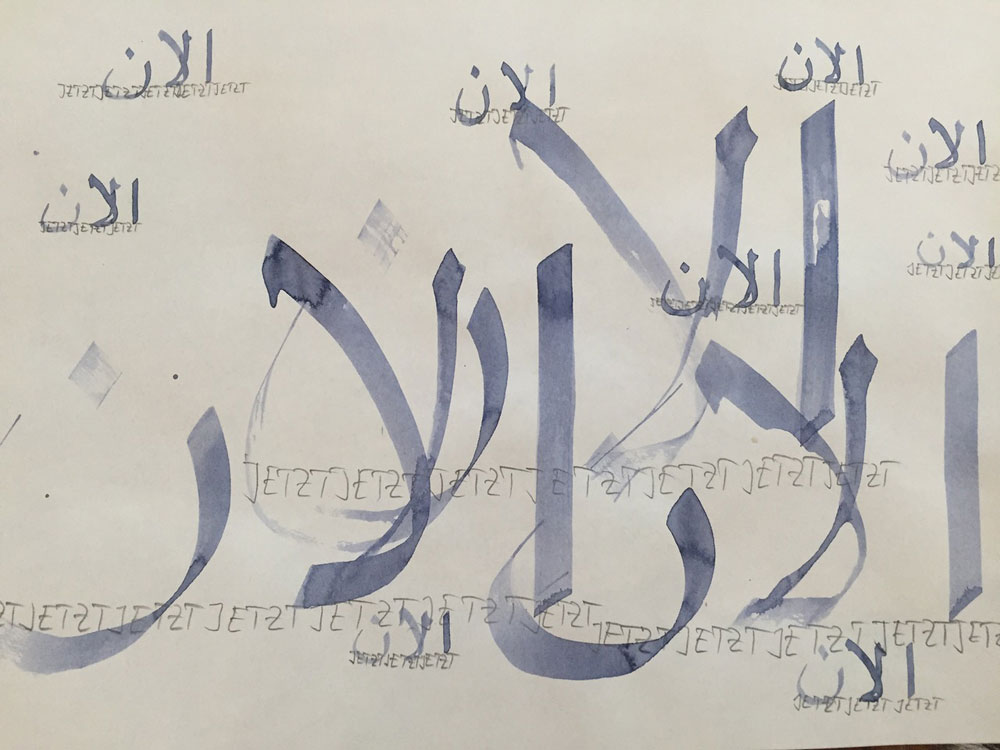 الان
JETZTJETZTJETZTJETZTJETZT
الان
JETZTJETZTJETZT
الان
JETZTJETZTJETZT
الان
JETZTJETZTJETZ
الان
JETZTJETZTJETZT
الان
JETZTJETZT
الان
الان
JETZTJETZTJETZTJETZT
الان
JETZTJETZTJETZTJETZTJETZTJETZTJETZT
الان
ZTJETZTJETZTJETZTJETZTJETZTJETZT
JETZTJETZTJETZTJETZTJETZT
الان
JETZTJETZTJETZT
الان
JETZTJETZT JETZT